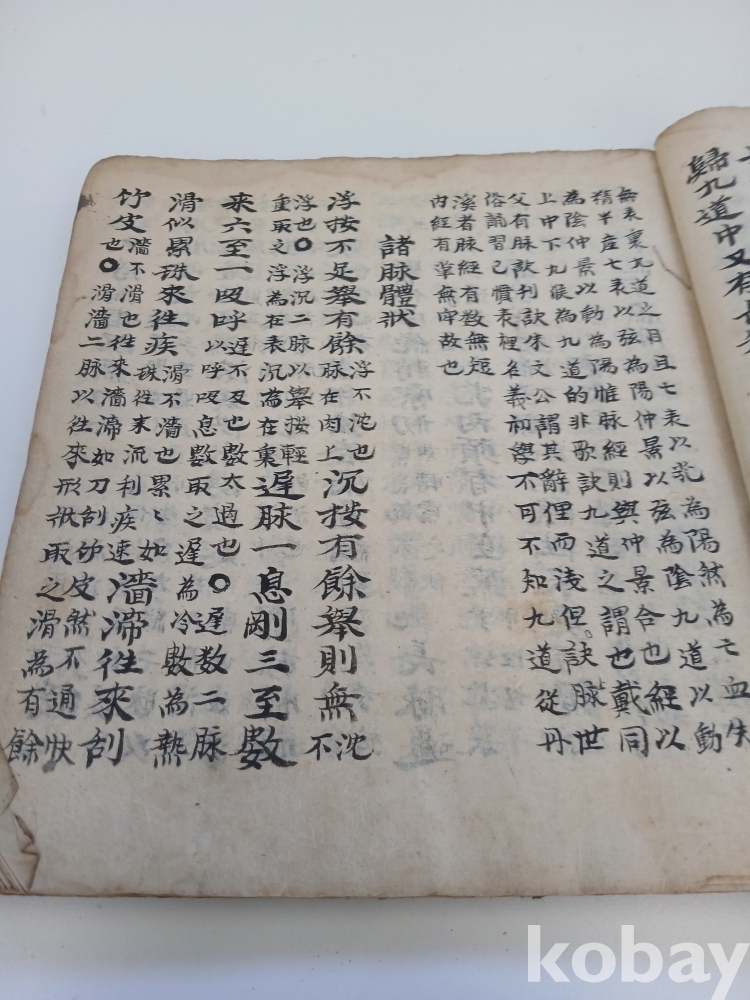 歸九道中又有
無表裏九道之目且七表以芤為陽然為亡血失
精半産七表以弦為陽仲景以弦為陰九道以動
為陰仲景以動為陽惟脉經則與仲景合也經以
上中下九候為九道的非歌訣九道之謂也戴同
父有脉訣刊誤朱文公謂其辭俚而淺但訣脉世
俗誦習已慣表裡名義初學不可不知九道從丹
溪者脉經有数無短
内經有革無牢故也
諸脉體狀
浮按不足擧有餘脉在肉上浮不沈也沉按有餘擧則無沈不
浮也〇浮沉二脉以擧按輕
重取之浮為在表沉為在裏遲脉一息剛三至數
來六至一吸呼遲不及也數太過也〇遲数二脉
以呼吸息數取之遲為冷數為熱
滑似累珠來往疾滑不濇也累〻如
珠往来流利疾速濇滯徃來刮
竹皮濇不滑也徃來濇滯如刀刮竹皮然不通快
也〇滑濇二脉以徃來形狀取之滑為有餘
kobay